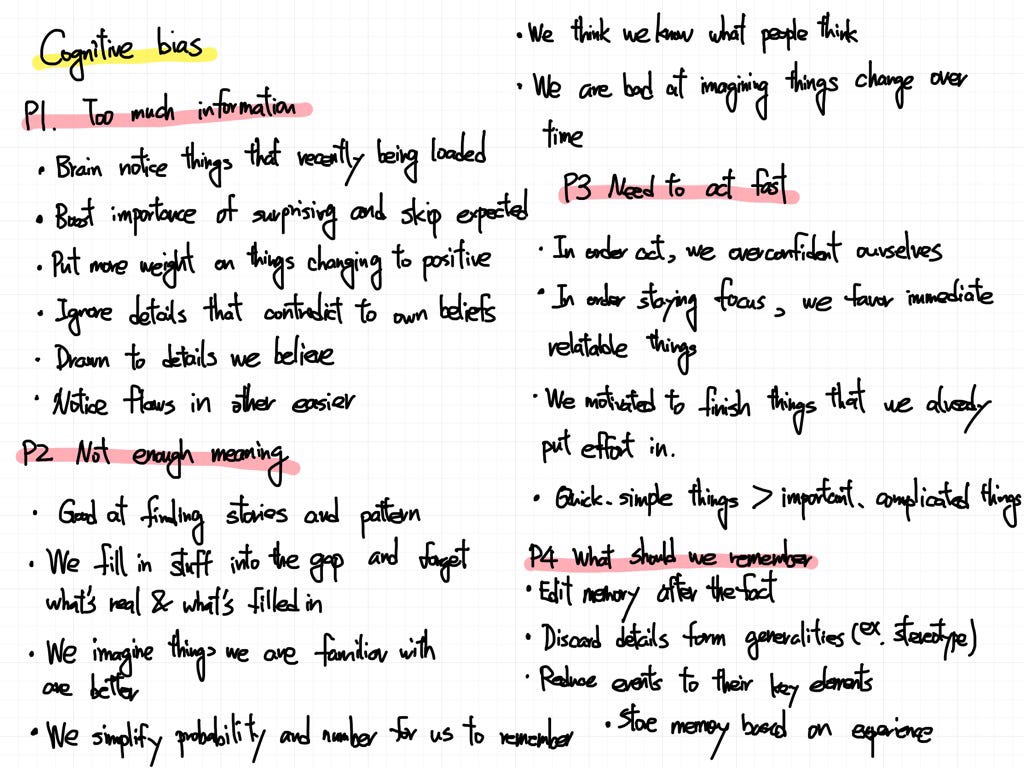 Cognitive bias
P1. Too much information
• Brain notice things that recently being loaded
• Boost importance of surprising and skip expected
• Put more weight on things changing to positive
• Ignore details that contradict to own beliefs
• Drawn to details we believe
• Notice flaws in other easier
P2 Not enough meaning
• Good at finding stories and pattern
• We fill in stuff into the gap and forget
what's real & what's filled in
• We imagine things we are familiar with
are better
• We simplify probability and number for us to remember
• We think we know what people think
• We are bad at imagining things change over
time
P3 Need to act fast
• In order act, we overconfident ourselves
• In order staying focus, we favor immediate
relatable things
• We motivated to finish things that we already
put effort in.
• Quick. simple things > important. complicated things
P4 What should we remember
• Edit memory after the fact
• Discard details form generalities (ex. stereotype)
• Reduce events to their key elements
• Store memory based on experience